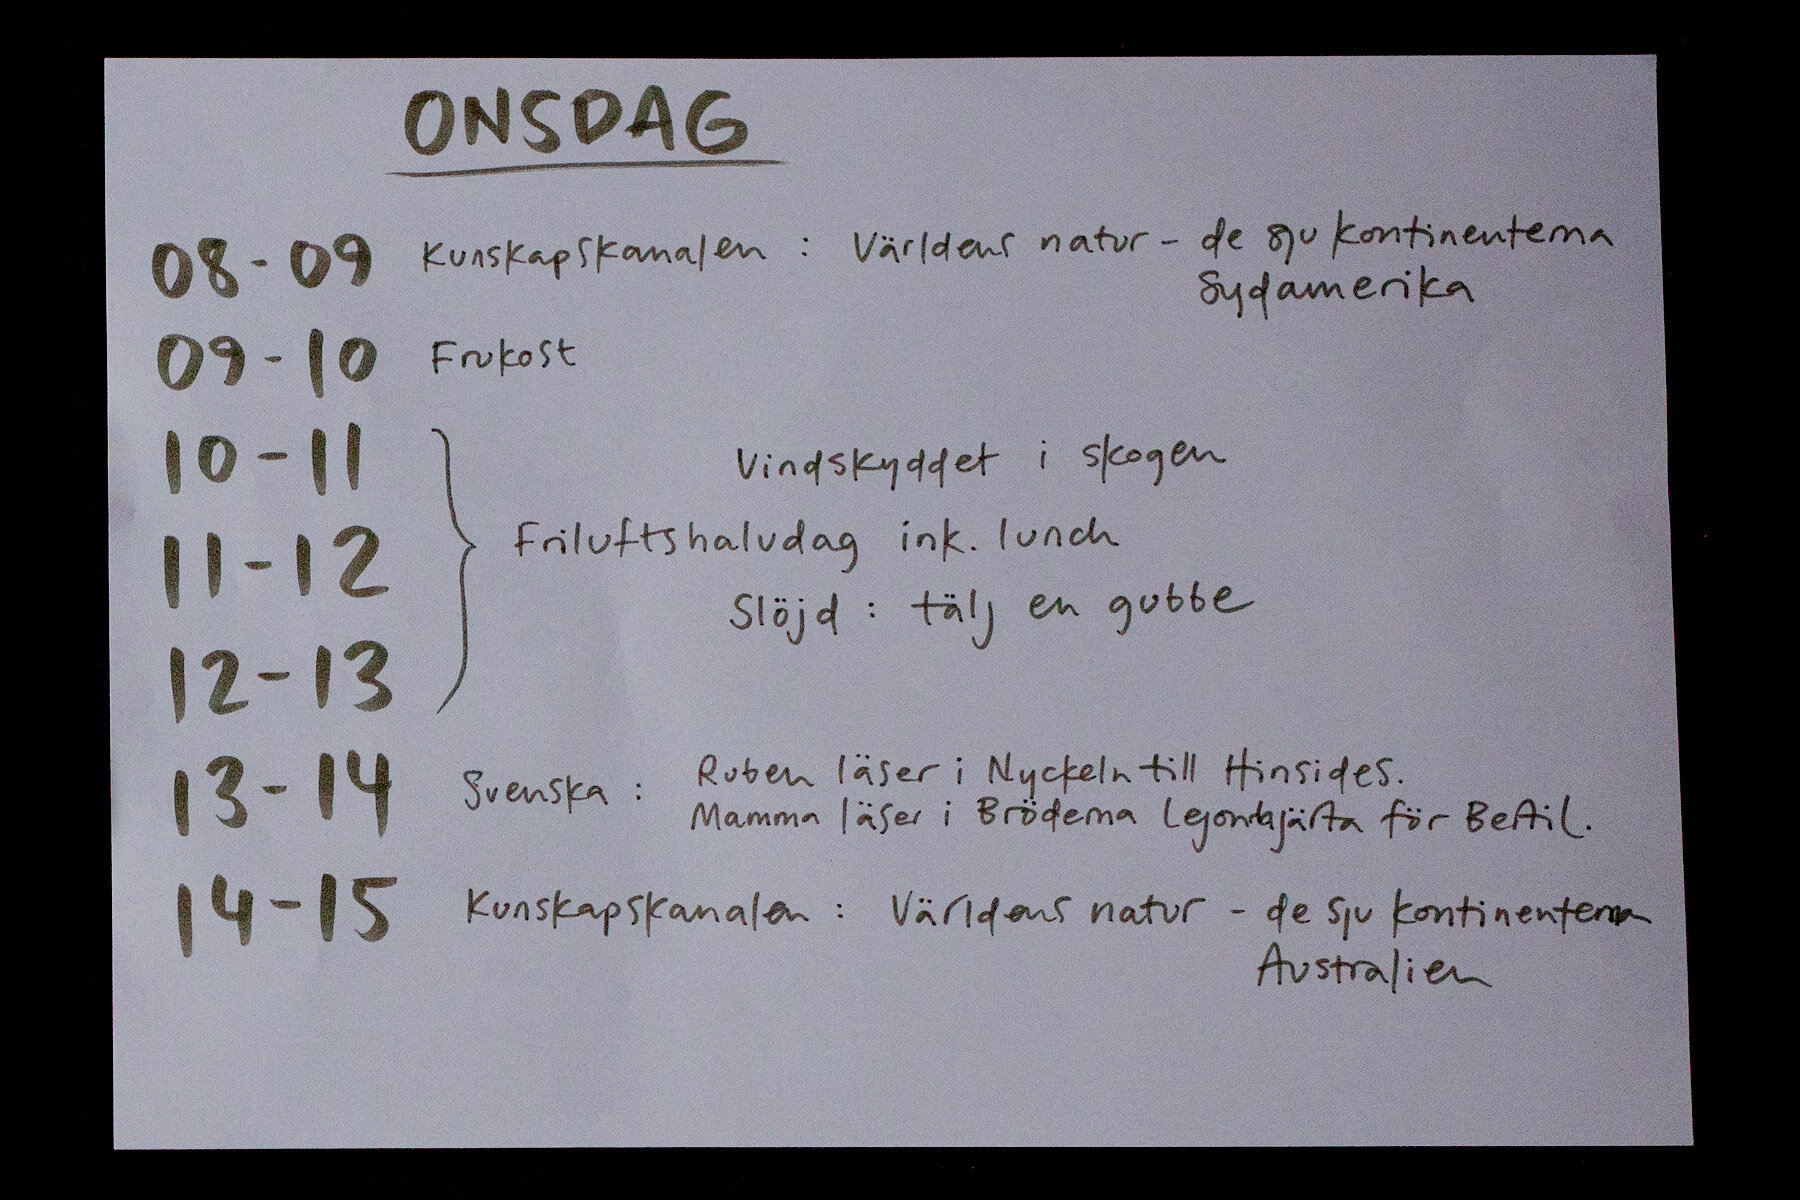 ONSDAG
08-09 Kunskapskanalen : Världens natur - de sju kontinenterna
Sydamerika
09-10 Frukost
10-11 Vindskyddet i skogen
11-12 Friluftshalvdag ink. lunch
Slöjd : tälj en gubbe
12-13
13-14 Svenska : Ruben läser i Nyckeln till Hinsides.
Mamma läser i Bröderna Lejonhjärta för Bertil.
14-15 Kunskapskanalen : Världens natur - de sju kontinenterna
Australien